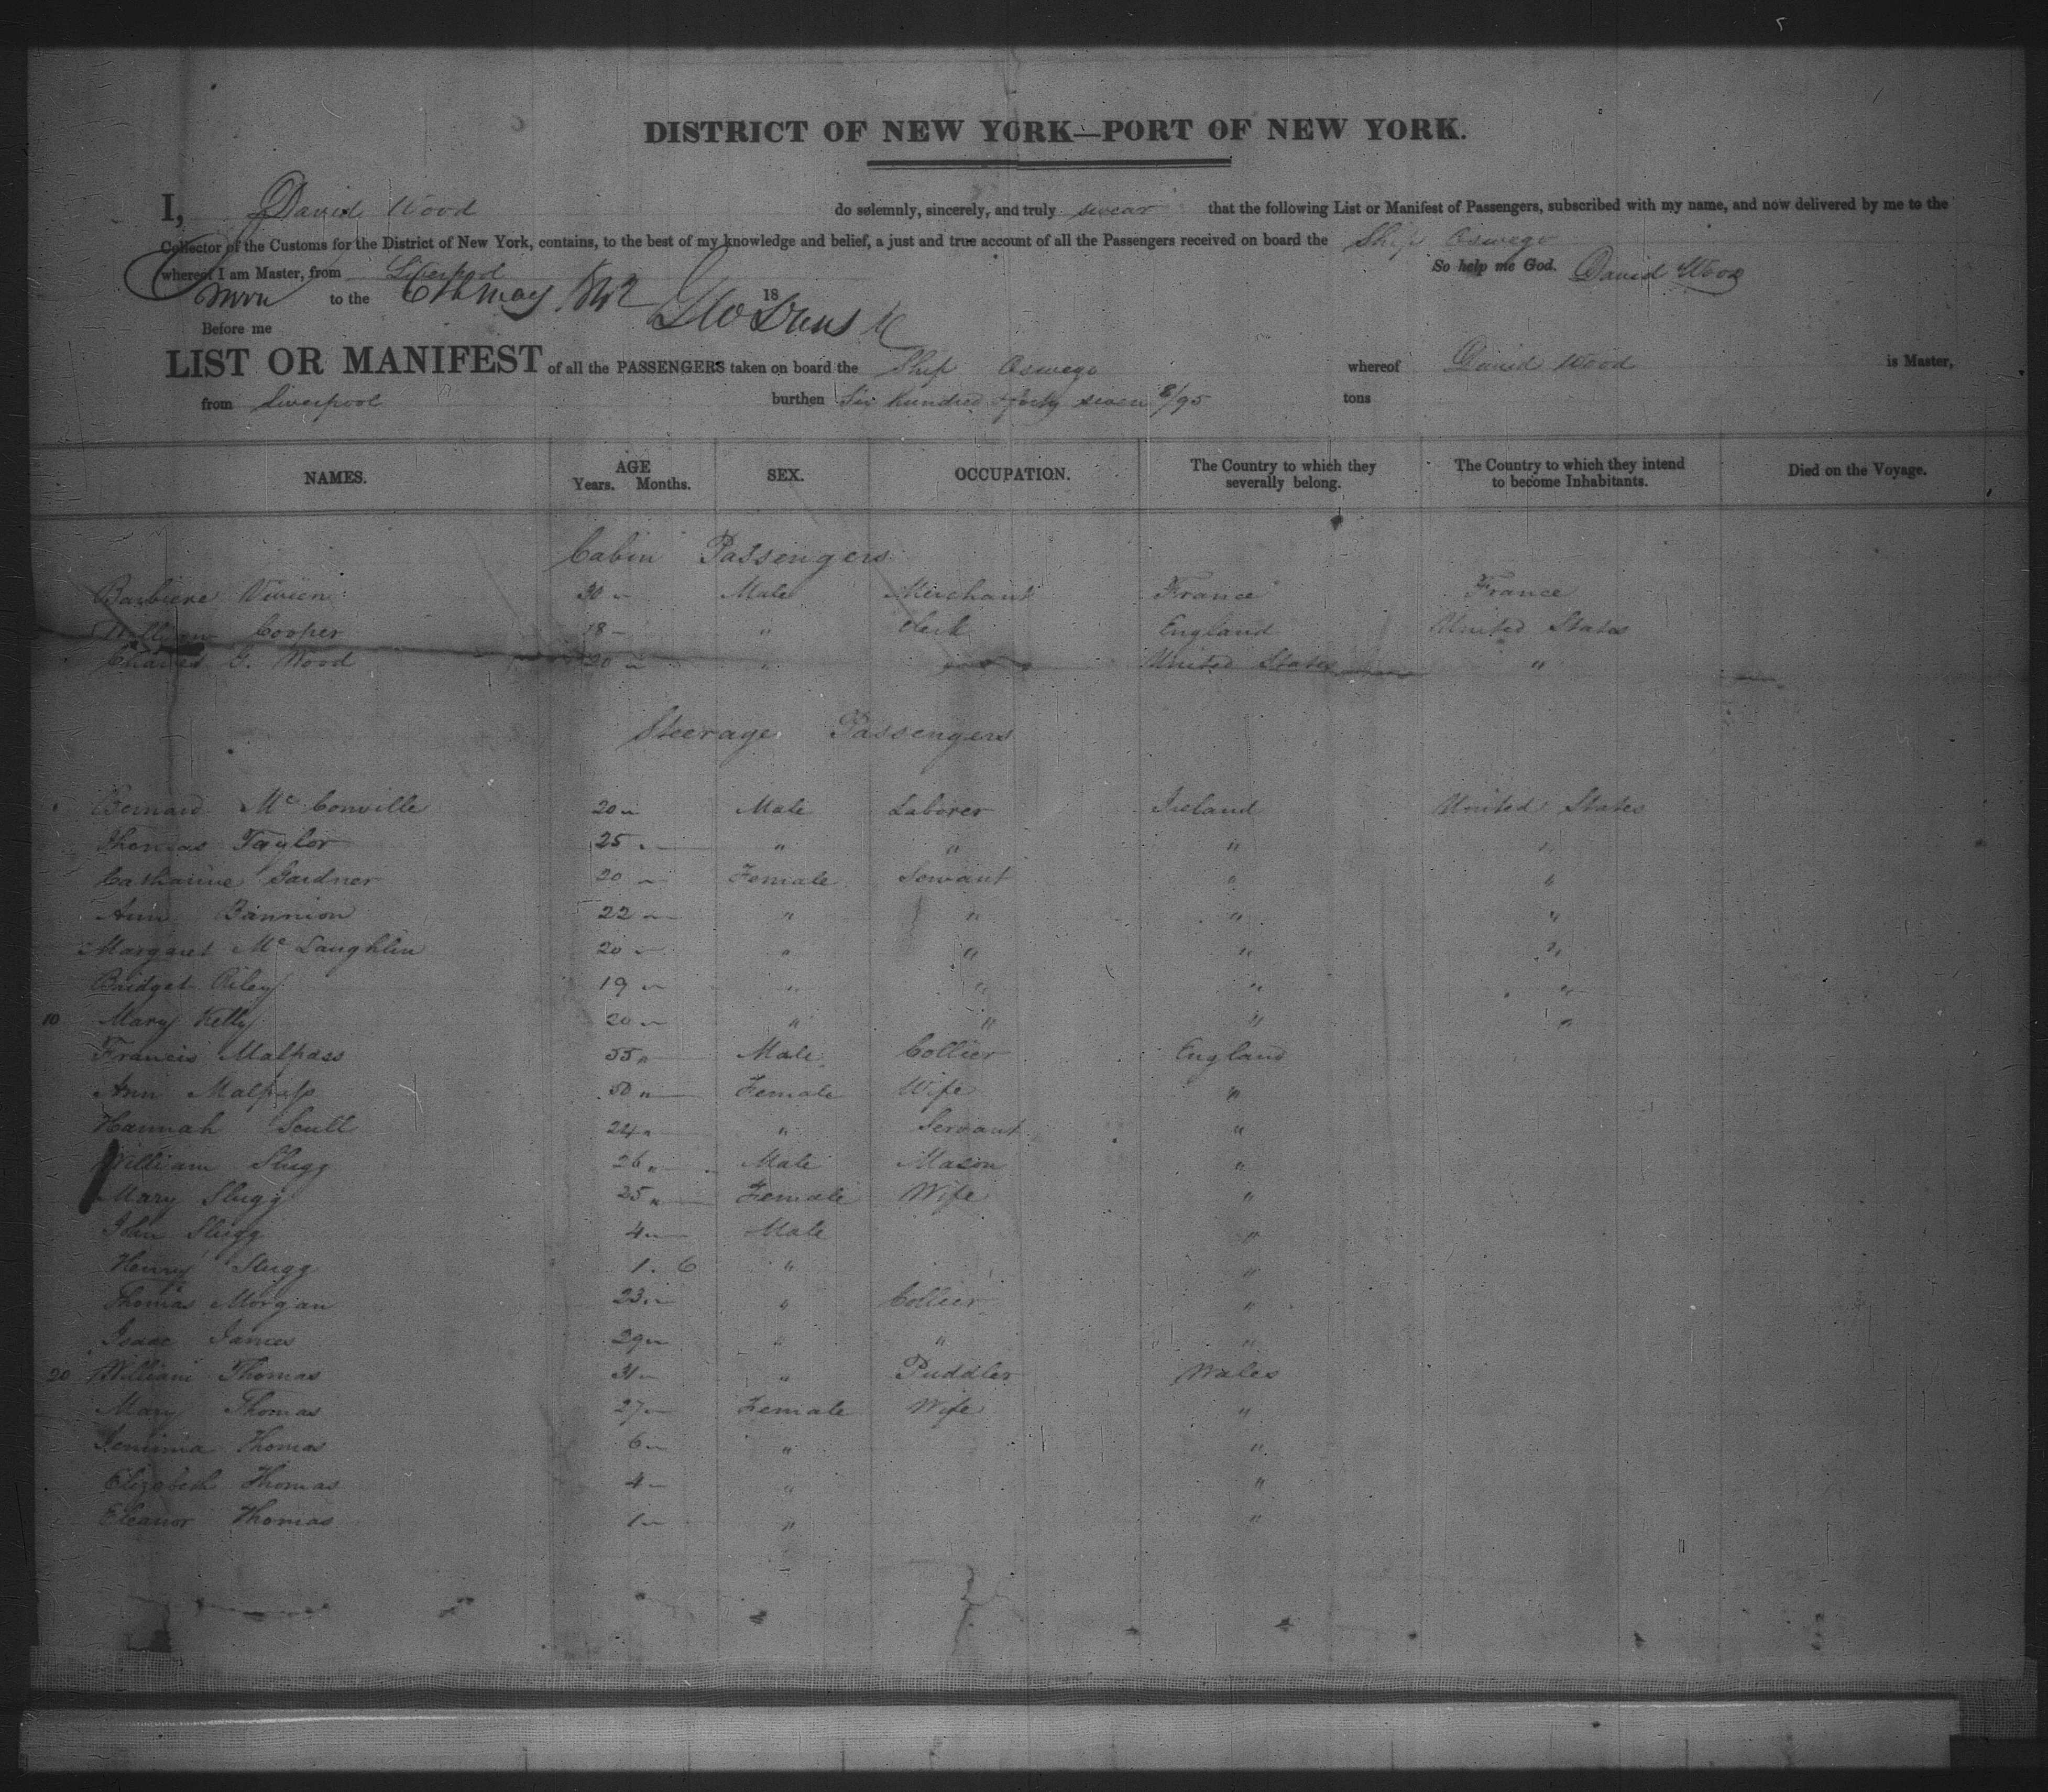 DISTRICT OF NEW YORK—PORT OF NEW YORK.
I, David Wood do solemnly, sincerely, and truly swear that the following List or Manifest of Passengers, subscribed with my name, and now delivered by me to the
Collector of the Customs for the District of New York, contains, to the best of my knowledge and belief, a just and true account of all the Passengers received on board the Ship Oswego
whereof I am Master, from Liverpool So help me God. David Wood
to the May 18
Before me
LIST OR MANIFEST of all the PASSENGERS taken on board the Ship Oswego whereof David Wood is Master,
from Liverpool burthen Six hundred forty seven 8/95 tons
NAMES. AGE Years. Months. SEX. OCCUPATION. The Country to which they severally belong. The Country to which they intend to become Inhabitants. Died on the Voyage.
Cabin Passengers
Barbiere Vivien 30 Male Merchant France France
William Cooper 18 " Clerk England United States
Charles G. Wood 20 " United States "
Steerage Passengers
Bernard Mc Conville 20 Male Laborer Ireland United States
Thomas Taylor 25 " " " "
Catharine Gardner 20 Female Servant " "
Ann Bannion 22 " " " "
Margaret Mc Laughlin 20 " " " "
Bridget Riley 19 " " " "
10 Mary Kelly 20 " " " "
Francis Malpass 55 " Male Collier England
Ann Malpass 50 " Female Wife "
Hannah Scull 24 " " Servant "
William Slugg 26 " Male Mason "
Mary Slugg 25 " Female Wife "
John Slugg 4 Male "
Henry Slugg 1. 6 " "
Thomas Morgan 23 " Collier "
Isaac James 29 " " "
20 William Thomas 31 " Puddler Wales
Mary Thomas 27 Female Wife "
Jemima Thomas 6 " "
Elizabeth Thomas 4 " "
Eleanor Thomas 1 " "